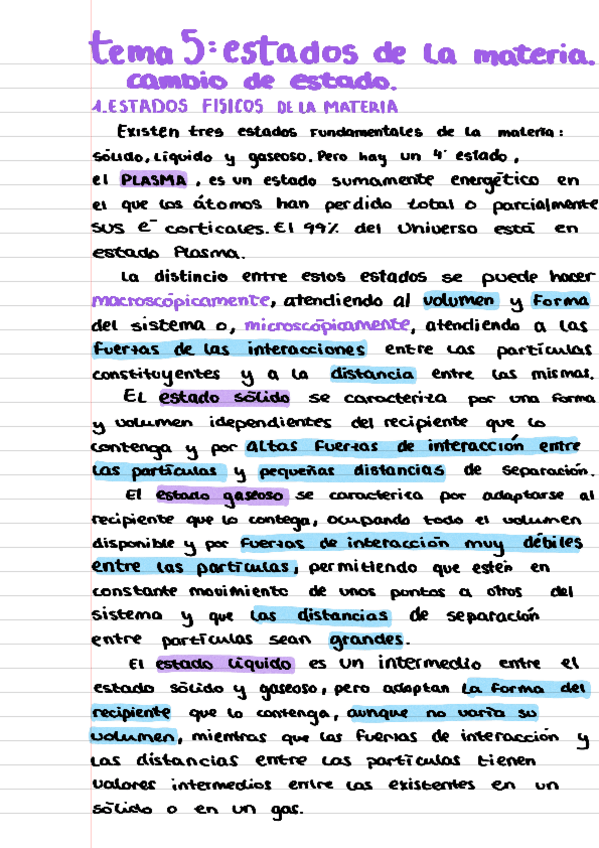 tema 5: estados de la materia.
cambio de estado.
1. ESTADOS FISICOS DE LA MATERIA
Existen tres estados fundamentales de la materia:
sólido, líquido y gaseoso. Pero hay un 4º estado,
el PLASMA, es un estado sumamente energético en
el que los átomos han perdido total o parcialmente
sus e⁻ corticales. El 99% del Universo está en
estado Plasma.
La distincio entre estos estados se puede hacer
macroscópicamente, atendiendo al volumen y forma
del sistema o, microscópicamente, atendiendo a las
fuerzas de las interacciones entre las partículas
constituyentes y a la distancia entre las mismas.
El estado sólido se caracteriza por una forma
y volumen idependientes del recipiente que lo
contenga y por altas fuerzas de interacción entre
las partículas y pequeñas distancias de separación.
El estado gaseoso se caracteriza por adaptarse al
recipiente que lo contega, ocupando todo el volumen
disponible y por fuerzas de interacción muy débiles
entre las partículas, permitiendo que estén en
constante movimiento de unos pontos a otros del
sistema y que las distancias de separación
entre partículas sean grandes.
El estado líquido es un intermedio entre el
estado sólido y gaseoso, pero adoptan la forma del
recipiente que lo contenga, aunque no varía su
volumen, mientras que las fuerzas de interacción y
las distancias entre las partículas tienen
valores intermedios entre los existentes en un
sólido o en un gas.